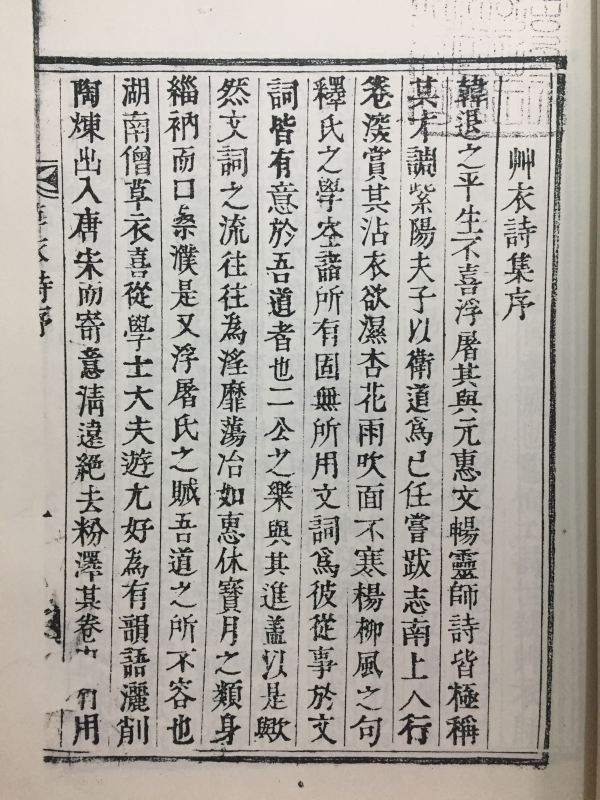 艸衣詩集序
韓退之平生不喜浮屠其與元惠文暢靈師詩皆極稱
其才調紫陽夫子以衛道爲已任嘗跋志南上人行
卷深賞其沾衣欲濕杏花雨吹面不寒楊柳風之句
釋氏之學空諸所有固無所用文詞爲彼從事於文
詞皆有意於吾道者也二公之樂與其進盖以是歟
然文詞之流往往為淫靡蕩冶如惠休寶月之類身
緇衲而口桑濮是又浮屠氏之賊吾道之所不容也
湖南僧草衣喜從學士大夫遊尤好為有韻語灑削
陶煉出入唐宋而寄意清遠絶去粉澤其卷用
衣詩序